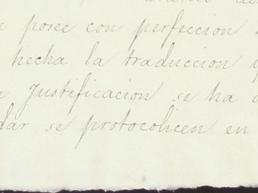 posee con perfeccion
hecha la traduccion
Justificacion se ha
dar se protocolicen en